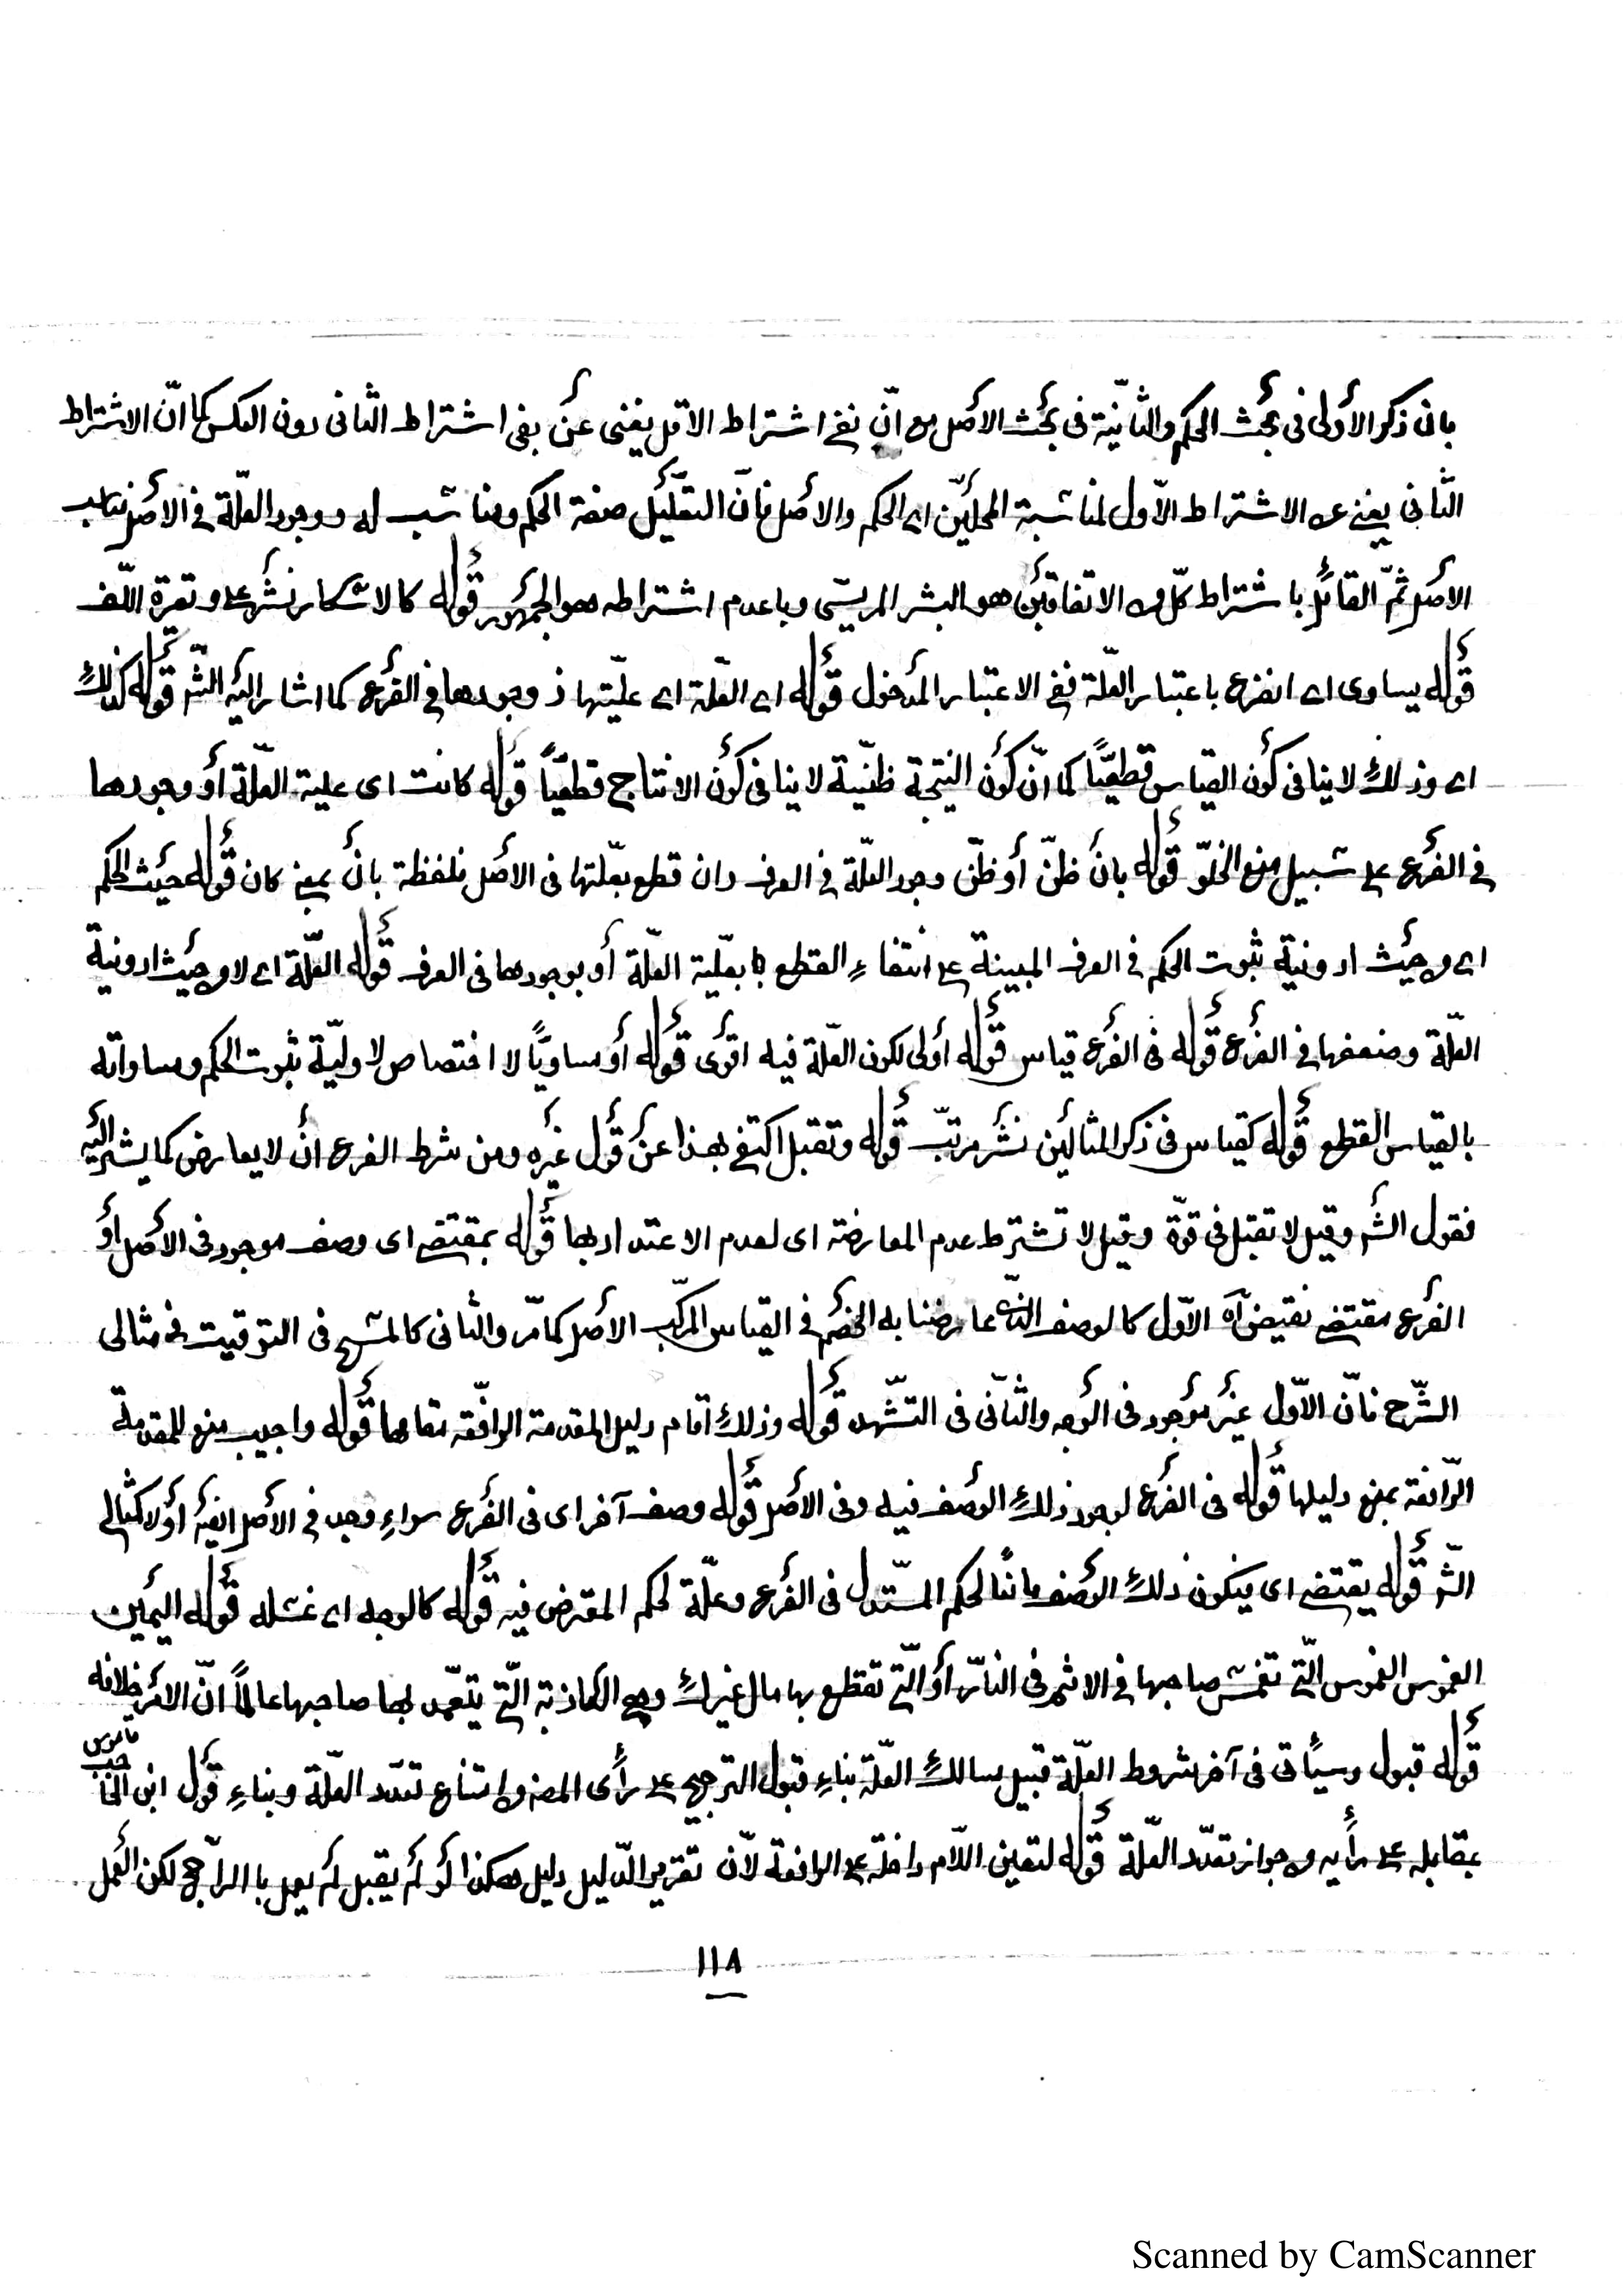 بان ذكر الأولى فى بحث الحكم والثانية فى بحث الأصل مع انّ نفى اشتراط الاول يغنى عن نفى اشتراط الثانى دون العكس كما انّ الاشتراط
الثانى يغنى عن الاشتراط الاول لمناسبة المحلّين اى الحكم والاصل فانّ التعليل صفة الحكم ومناسب له ووجود العلّة فى الاصل يناسب
الاصل ثمّ القائل باشتراط كلّ من الاتفاقين هو البشر المريسى وبا عدم اشتراطه هو الجمهور قوله كالاسكار نشر على وتعرة اللف
قوله يساوى اى الفرع باعتبار العلّة نفى الاعتبار المدخول قوله اى العلّة اى علّيتها ذ وجودها فى الفرع كما اشار اليه الشر قوله كذلك
اى وذلك لا ينافى كون القياس قطعيّا كما انّ كون النتيجة ظنّية لا ينافى كون الانتاج قطعيّاً قوله كانت اى علية العلّة أو وجودها
فى الفرع على سبيل منع الخلوّ قوله بان ظنّ أو ظنّ وجود العلّة فى الفرع وان قطع بعلّتها فى الاصل فلفظة بان بمعنى كان قوله حيث الحكم
اى من حيث ادونية ثبوت الحكم فى الفرع المبينة على انتفاء القطع بعلّية العلّة أو بوجودها فى الفرع قوله العلّة اى لا من حيث ادونية
العلّة وضعفها فى الفرع قوله فى الفرع قياس قوله أولى لكون العلّة فيه اقوى قوله أو مساويًا لا اختصاص لاوليّة ثبوت الحكم ومساواته
بالقياس القطع قوله كقياس فى ذكر المثالين نشر مرتّب قوله وتقبل اكتفى بهذا عن قول غيره ومن شرط الفرع ان لا يعارض كما يشير اليه
فقول الشر وقيل لا تقبل فى قوّة وقيل لا تشترط عدم المعارضة اى لعدم الاعتداد بها قوله بمقتضى اى وصف موجود فى الاصل أو
الفرع مقتضى نقيض آه الاوّل كالوصف الذى عارضنا به الخصم فى القياس المركّب الاصل كما مرّ والثانى كالمسح فى التوقيت فى مثالى
الشّرح فانّ الاوّل غير موجود فى الوجه والثانى فى التشهد قوله وذلك اقام دليل المقدمة الرافعة مقامها قوله واجيب منع للمقدمة
الرّافعة بمنع دليلها قوله فى الفرع لوجود ذلك الوصف فيه وفى الاصل قوله وصف آخر اى فى الفرع سواء وجد فى الأصل ايضًا أولا كمثالى
الشر قوله يقتضى اى يتكون ذلك الوصف مانعًا لحكم المستدل فى الفرع وعلّة لحكم المعترض فيه قوله كالوجه اى غسله قوله اليمين
الغموس الغموس الّتى تغمس صاحبها فى الاثم فى النار أو الّتى تقطع بها مال غيرك وهى الكاذبة الّتى يتعمّد بها صاحبها عالماً انّ الأمر خلافه
قاموس
قوله قبول وسيأتى فى آخر شروط العلّة قبيل مسالك العلّة بناء قبول الترجيح على رأى المصنف وامتناع تعدّد العلّة وبناء قول ابن الحاجب
بمقابله على رأيه من جواز تعدّد العلّة قوله لتعين اللّام داخلة على الرافعة لأنّ تقرير الدّليل دليل هكذا لو لم يقبل لم يعمل با الراجح لكن العمل
١١٨
Scanned by CamScanner